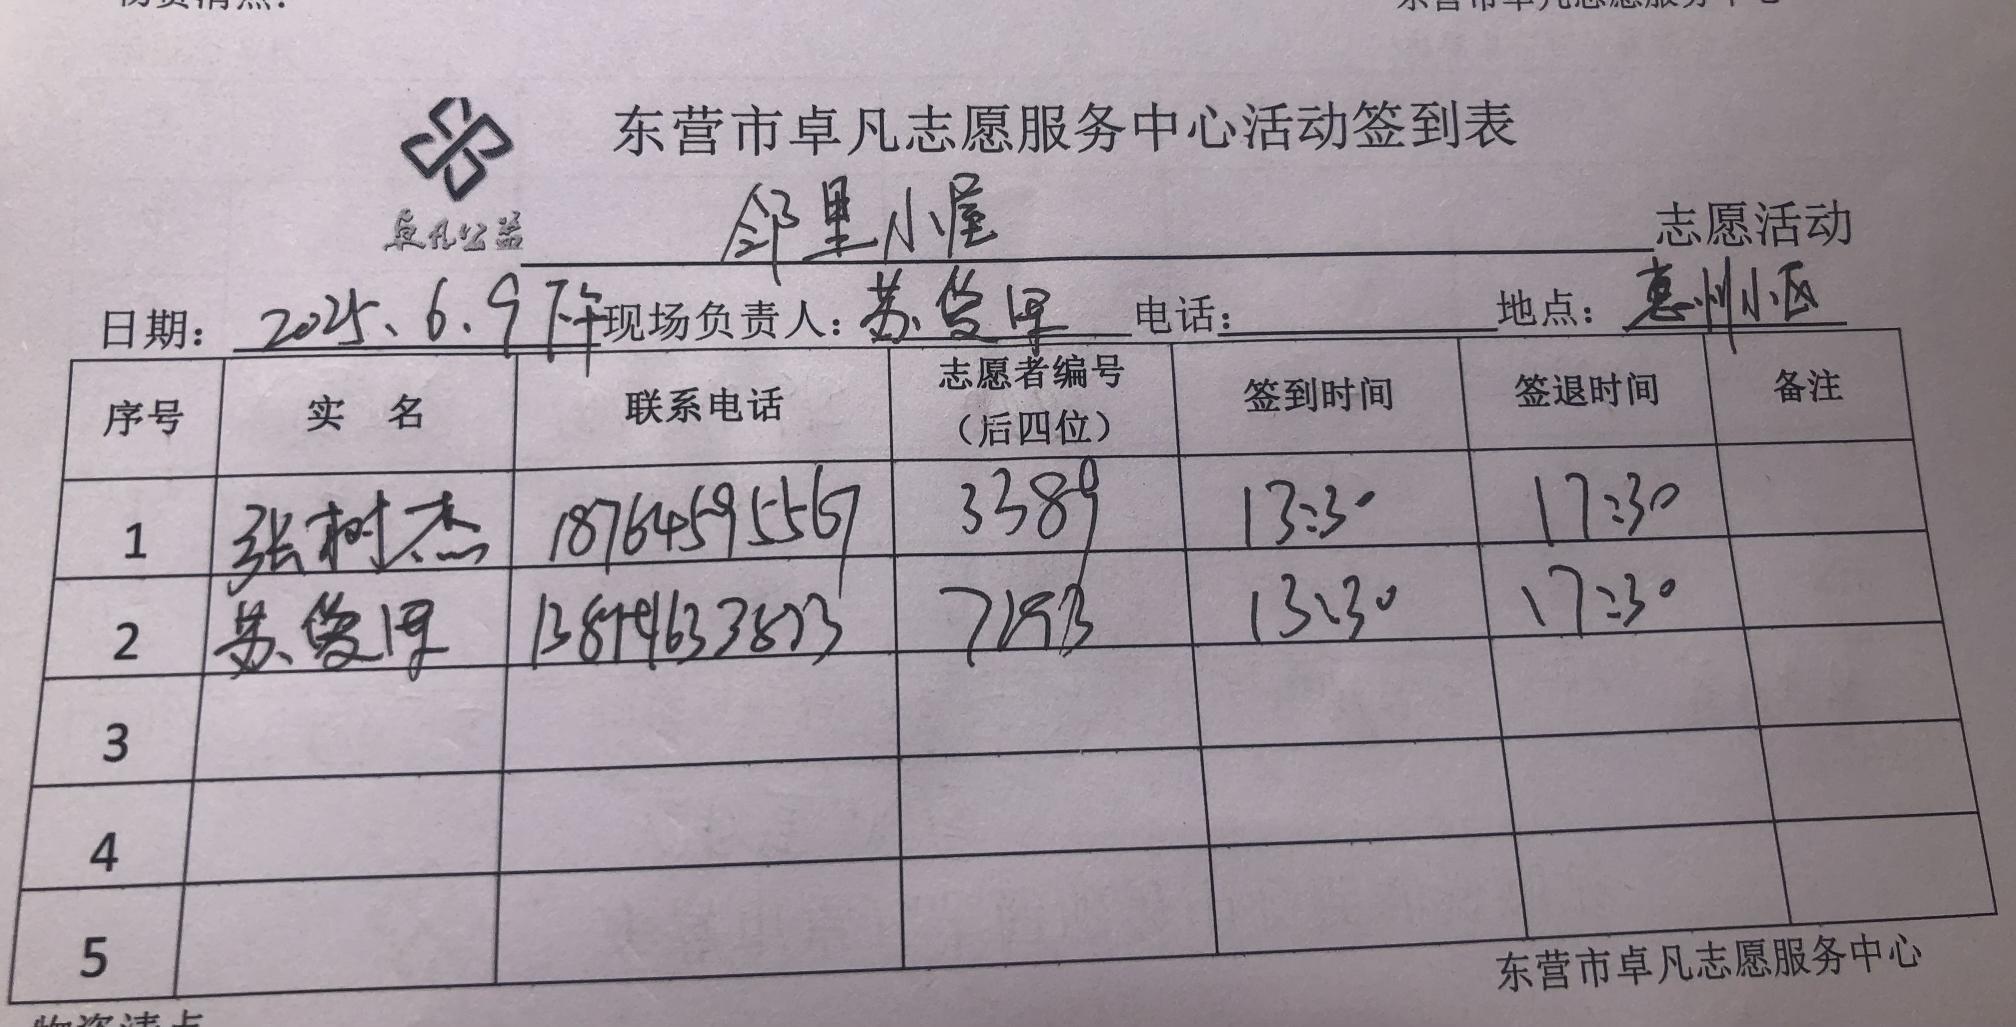 物资清点：
东营市卓凡志愿服务中心
东营市卓凡志愿服务中心活动签到表
卓凡公益
邻里小屋 志愿活动
日期： 2025、6、9下午 现场负责人：苏 电话： 地点：惠州小区
序号 实 名 联系电话 志愿者编号（后四位） 签到时间 签退时间 备注
1 张树杰 18764595567 3389 13:30 17:30
2 苏 7193 13:30 17:30
3
4
5
东营市卓凡志愿服务中心
物资清点